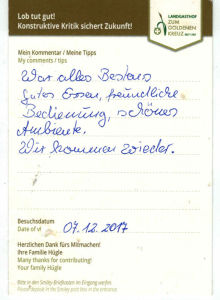 Lob tut gut!
Konstruktive Kritik sichert Zukunft!
LANDGASTHOF
ZUM
GOLDENEN
KREUZ
Mein Kommentar / Meine Tipps
My comments / tips
War alles Bestens
gutes Essen, freundliche
Bedienung, schönes
Ambiente.
Wir kommen wieder.
Besuchsdatum
Date of vi
07.12.2017
Herzlichen Dank fürs Mitmachen!
Ihre Familie Hügle
Many thanks for contributing!
Your family Hügle
Bitte in den Smiley-Briefkasten im Eingang werfen.
Please deposit in the Smiley post box in the entrance.